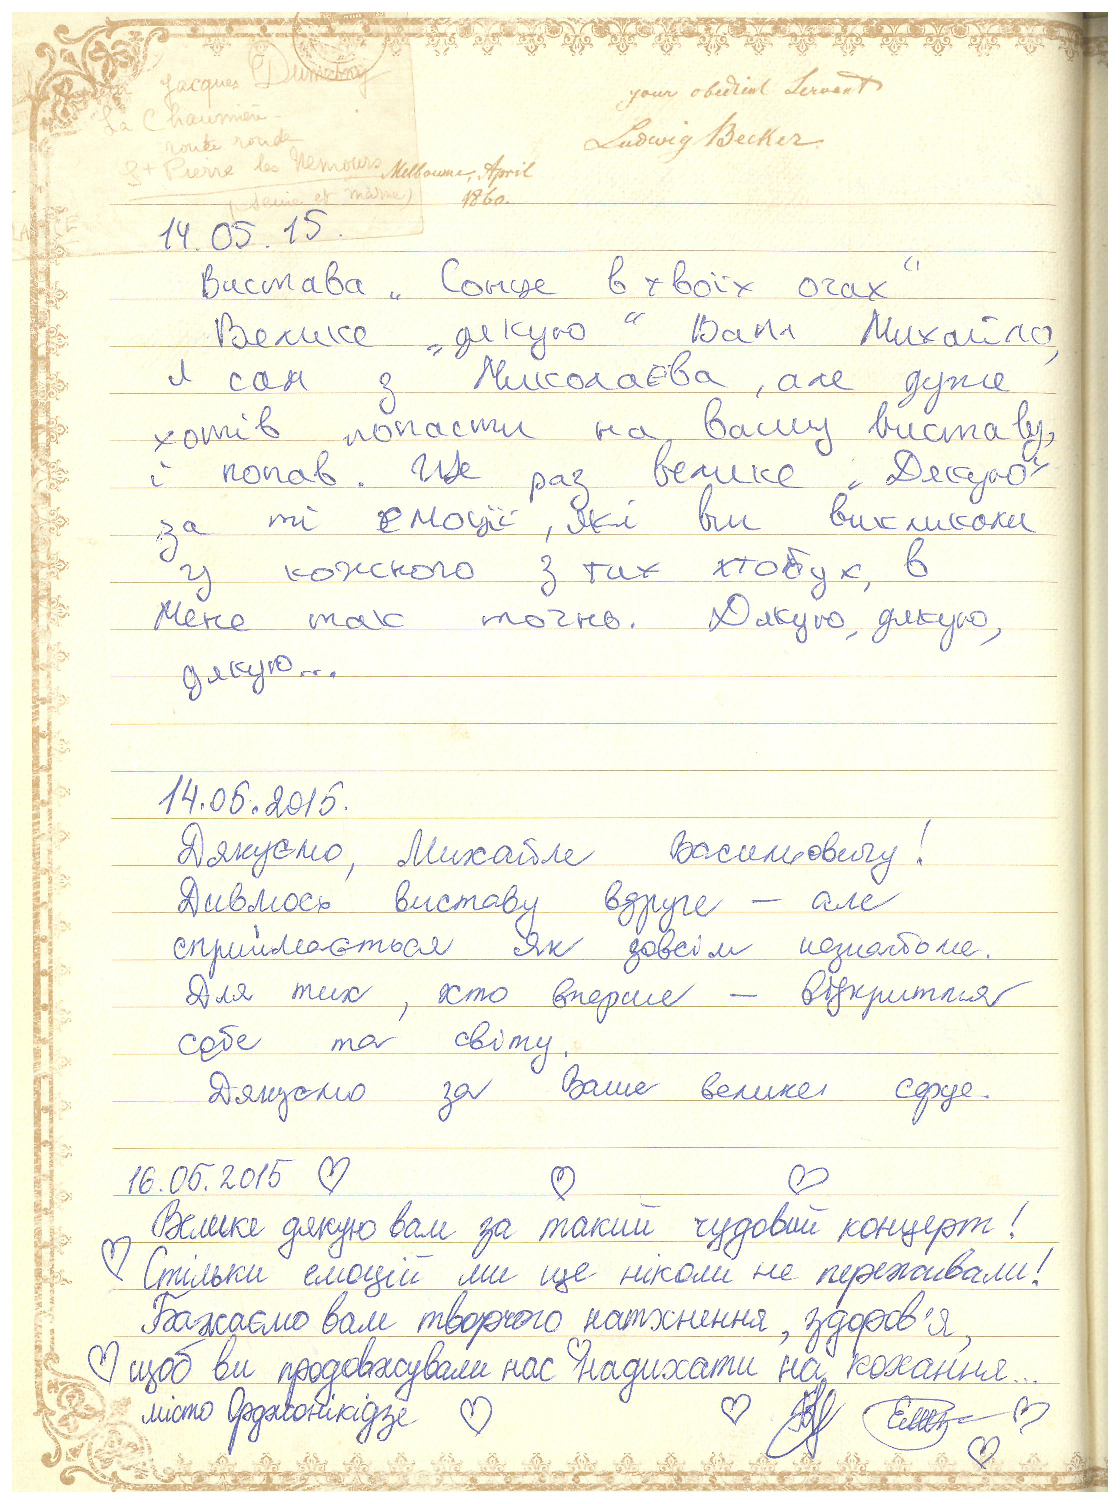 Jacques Dumetny
La Chaumière
route ronde
St Pierre les Nemours
(Seine et marne)
your obedient Servant
Ludwig Becker
Melbourne, April
1860.
14.05.15.
Вистава „Сонце в твоїх очах“
Велике „дякую“ Вам Михайло,
я сам з Миколаєва, але дуже
хотів попасти на вашу виставу,
і попав. Ще раз велике „Дякую“
за ті емоції, які ви викликали
у кожного з тих хтобув, в
мене так точно. Дякую, дякую,
дякую...
14.05.2015.
Дякуємо, Михайле Васильовичу!
Дивлюсь виставу вдруге – але
сприймається як зовсім незнайоме.
Для тих, хто вперше – відкриття
себе та світу.
Дякуємо за Ваше велике серце.
16.05.2015
Велике дякую вам за такий чудовий концерт!
Стільки емоцій ми ще ніколи не переживали!
Бажаємо вам творчого натхнення, здоров'я,
щоб ви продовжували нас надихати на кохання...
місто Орджонікідзе